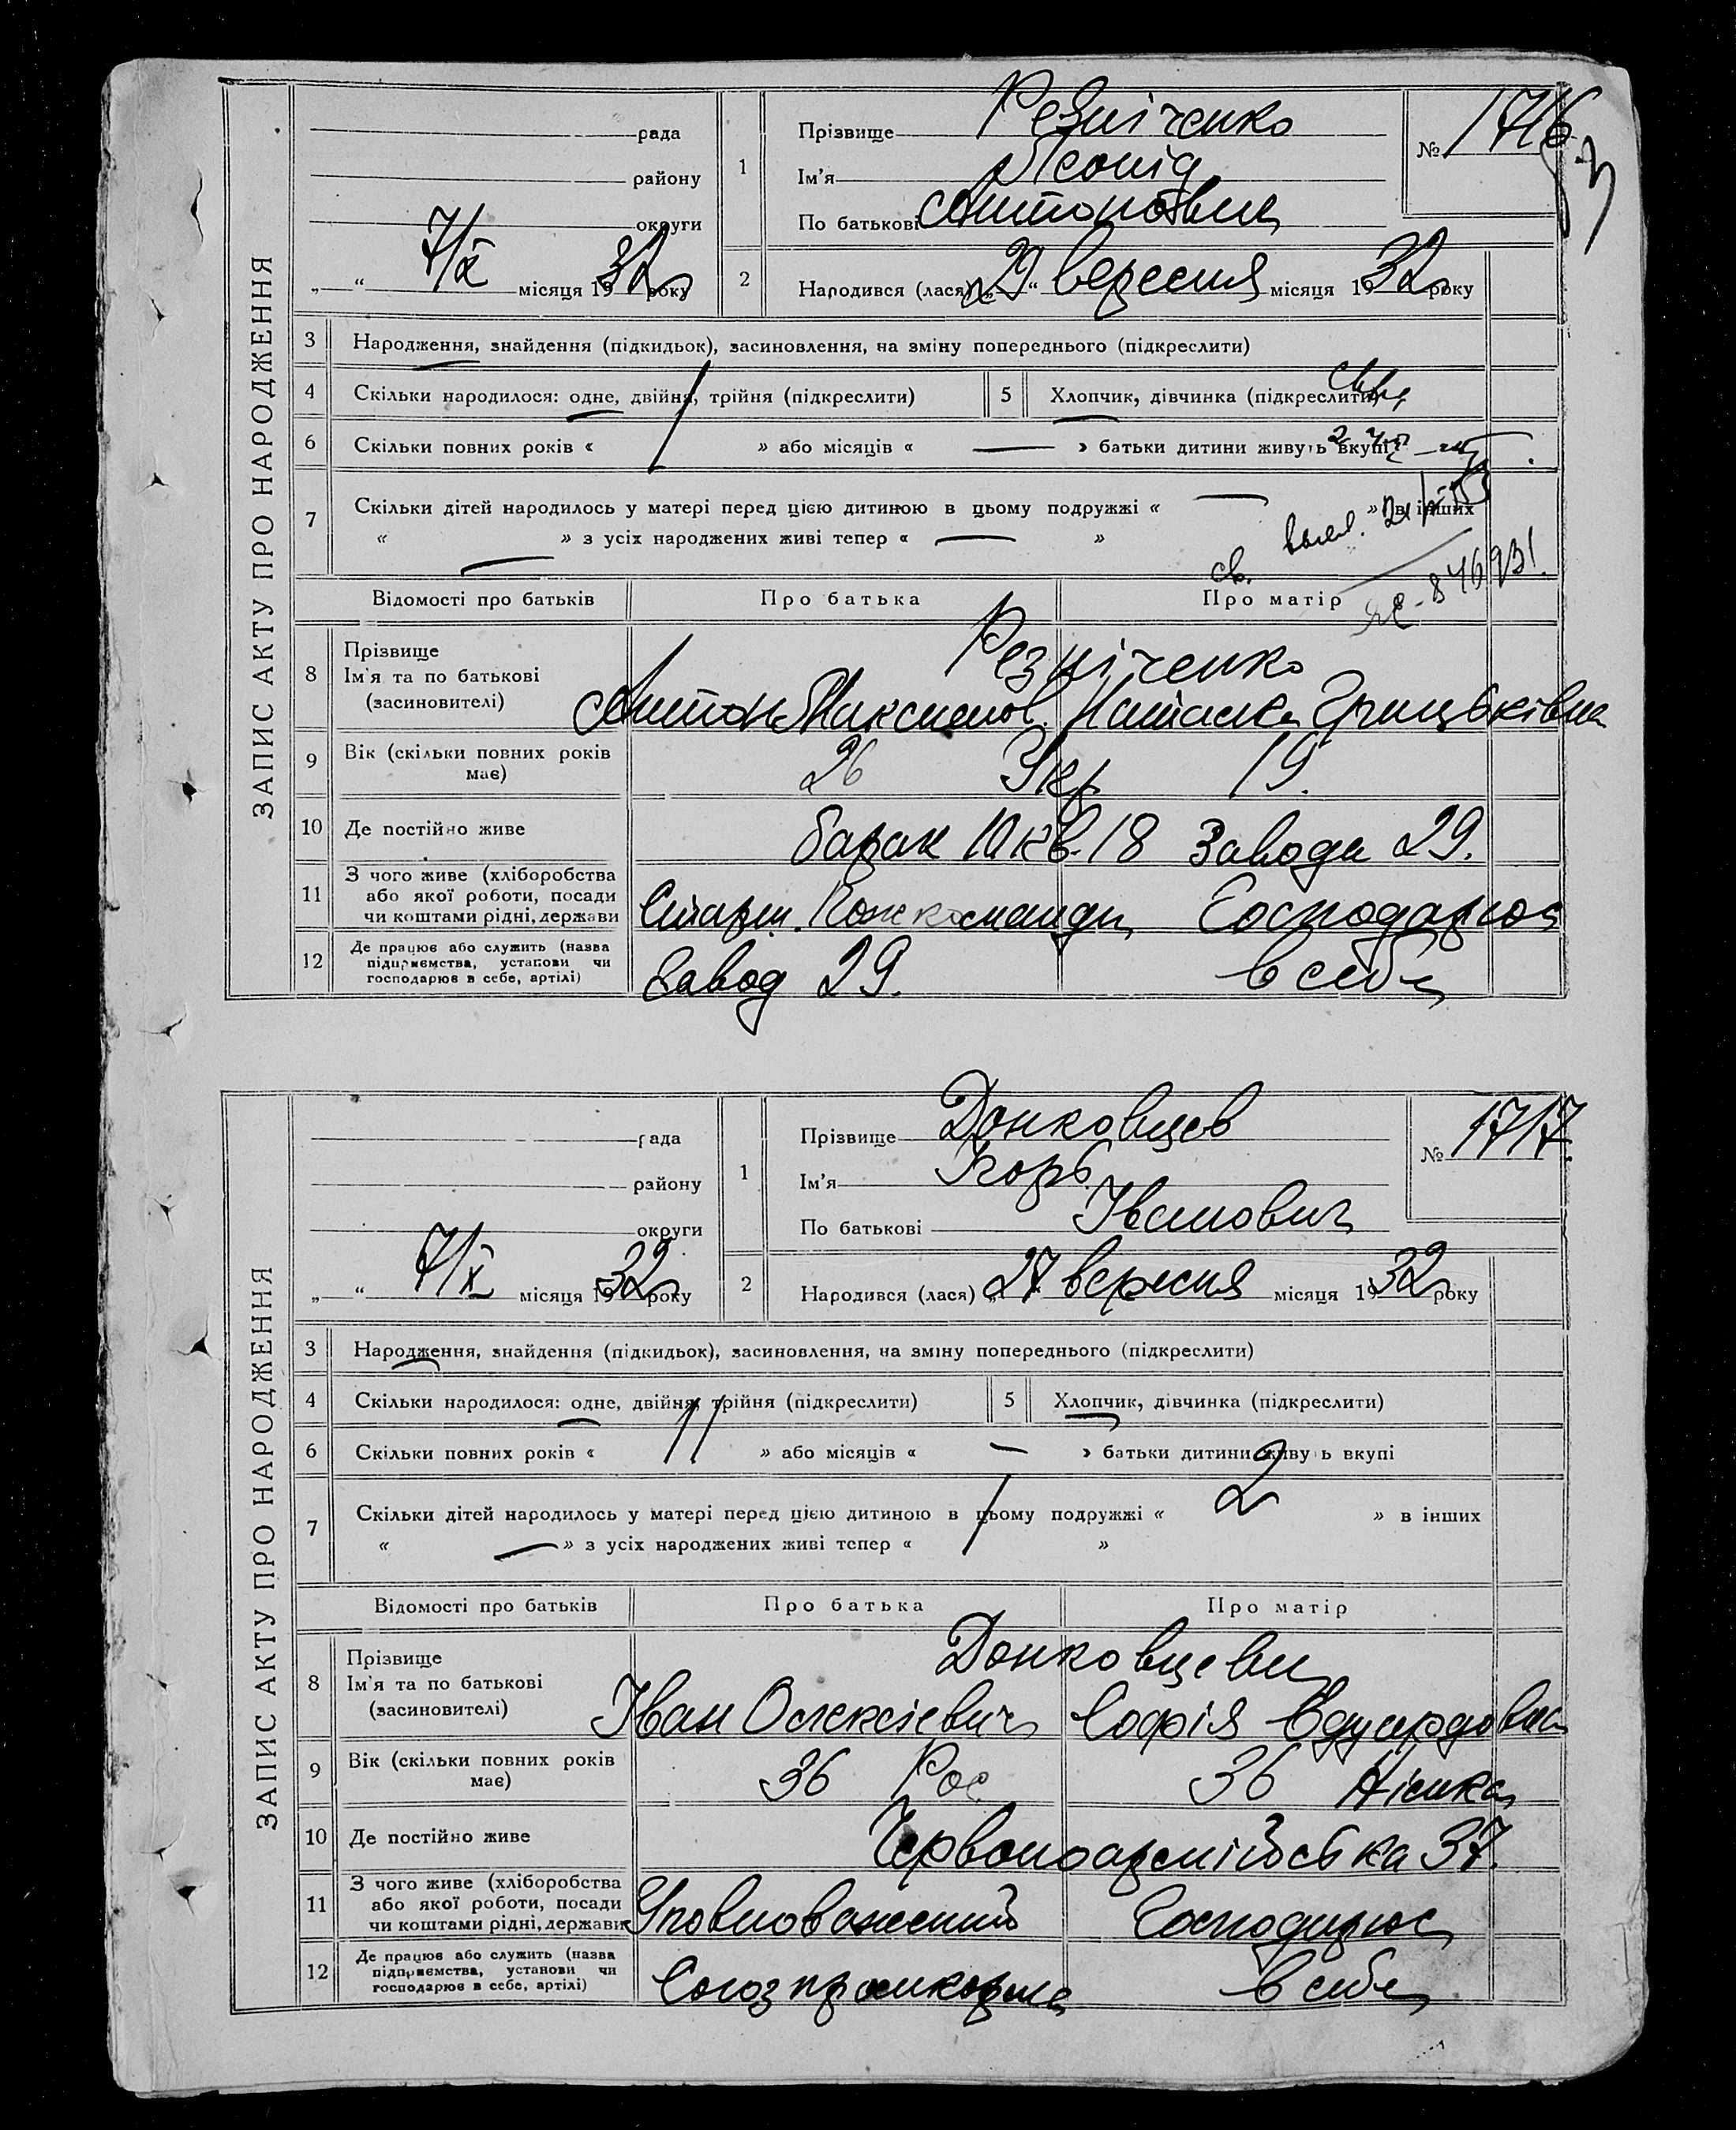 ЗАПИС АКТУ ПРО НАРОДЖЕННЯ
рада
району
округи
7/X місяця 1932 року
1
Прізвище Резніченко
Ім'я Леонід
По батькові Антонович
№ 1716
2
Народився (лася) „29“ вересня місяця 1932 року
3 Народження, знайдення (підкидьок), засиновлення, на зміну попереднього (підкреслити)
4 Скільки народилося: одне, двійня, трійня (підкреслити)
5 Хлопчик, дівчинка (підкреслити)
6 Скільки повних років « 1 » або місяців « — » батьки дитини живуть вкупі
7 Скільки дітей народилось у матері перед цією дитиною в цьому подружжі « — » в інших
« — » з усіх народжених живі тепер « — »
св.
Відомості про батьків Про батька Про матір
8 Прізвище
Ім'я та по батькові
(засиновителі)
Резніченко
Антон Максимов. Наталка Грицьківна
9 Вік (скільки повних років має)
26 Укр 19.
10 Де постійно живе
барак 10 кв. 18 Завода 29.
11 З чого живе (хліборобства
або якої роботи, посади
чи коштами рідні, держави
Старш. Пожкоманди Господарює
12 Де працює або служить (назва
підприємства, установи чи
господарює в себе, артілі)
Завод 29. в себе
ЗАПИС АКТУ ПРО НАРОДЖЕННЯ
рада
району
округи
7/X місяця 1932 року
1
Прізвище Донковцев
Ім'я Ігорь
По батькові Іванович
№ 1717.
2
Народився (лася) „27 вересня місяця 1932 року
3 Народження, знайдення (підкидьок), засиновлення, на зміну попереднього (підкреслити)
4 Скільки народилося: одне, двійня, трійня (підкреслити)
5 Хлопчик, дівчинка (підкреслити)
6 Скільки повних років « 11 » або місяців « — » батьки дитини живуть вкупі
7 Скільки дітей народилось у матері перед цією дитиною в цьому подружжі « 2 » в інших
« — » з усіх народжених живі тепер « 1 »
Відомості про батьків Про батька Про матір
8 Прізвище
Ім'я та по батькові
(засиновителі)
Донковцеви
Іван Олексієвич Софія Едуардовна
9 Вік (скільки повних років має)
36 Рос 36 Німка
10 Де постійно живе
Червоноармійська 37.
11 З чого живе (хліборобства
або якої роботи, посади
чи коштами рідні, держави
Уповноважений Господарює
12 Де працює або служить (назва
підприємства, установи чи
господарює в себе, артілі)
Союзпромкорма в себе